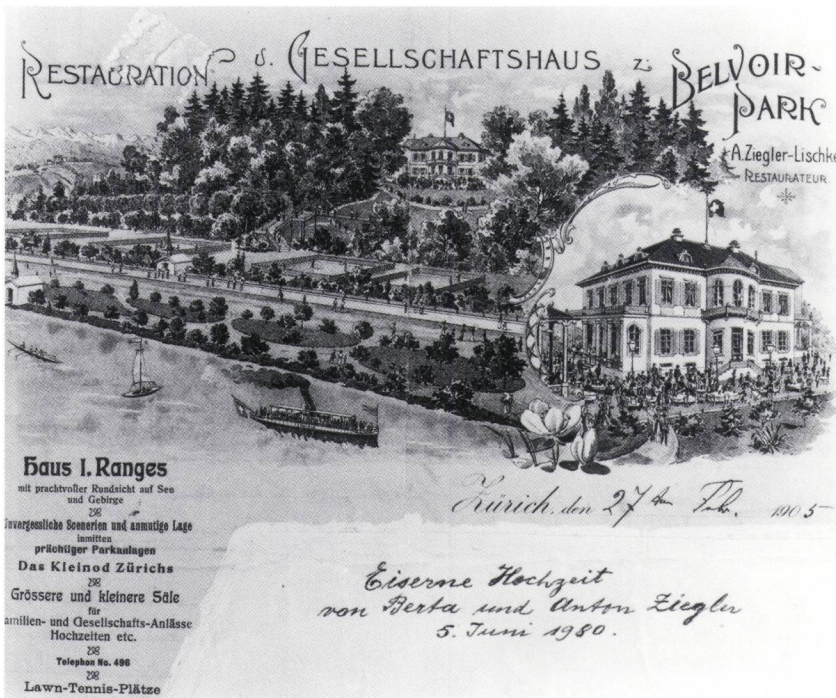 RESTAURATION u. GESELLSCHAFTSHAUS z. BELVOIR-
PARK
A. Ziegler-Lischke
RESTAURATEUR
Haus I. Ranges
mit prachtvoller Rundsicht auf See
und Gebirge
Unvergessliche Scenerien und anmutige Lage
inmitten
prächtiger Parkanlagen
Das Kleinod Zürichs
Grössere und kleinere Säle
für
amilien- und Gesellschafts-Anlässe
Hochzeiten etc.
Telephon No. 496
Lawn-Tennis-Plätze
Zürich, den 27 ten Febr. 1905
Eiserne Hochzeit
von Berta und Anton Ziegler
5. Juni 1980.